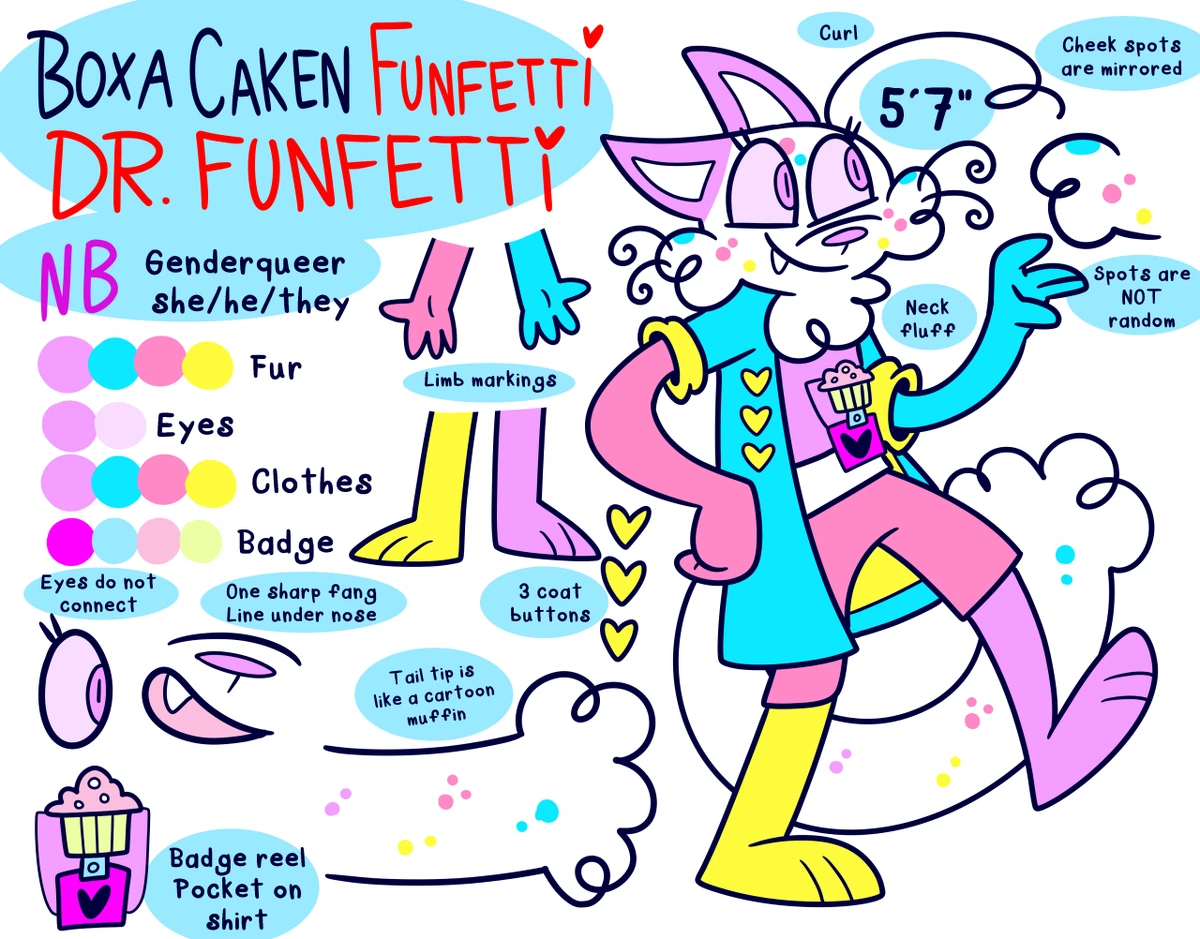 BOXA CAKEN FUNFETTI
DR. FUNFETTI
NB
Genderqueer
she/he/they
Fur
Eyes
Clothes
Badge
Limb markings
Curl
5'7"
Cheek spots
are mirrored
Spots are
NOT
random
Neck
fluff
Eyes do not
connect
One sharp fang
Line under nose
3 coat
buttons
Tail tip is
like a cartoon
muffin
Badge reel
Pocket on
shirt